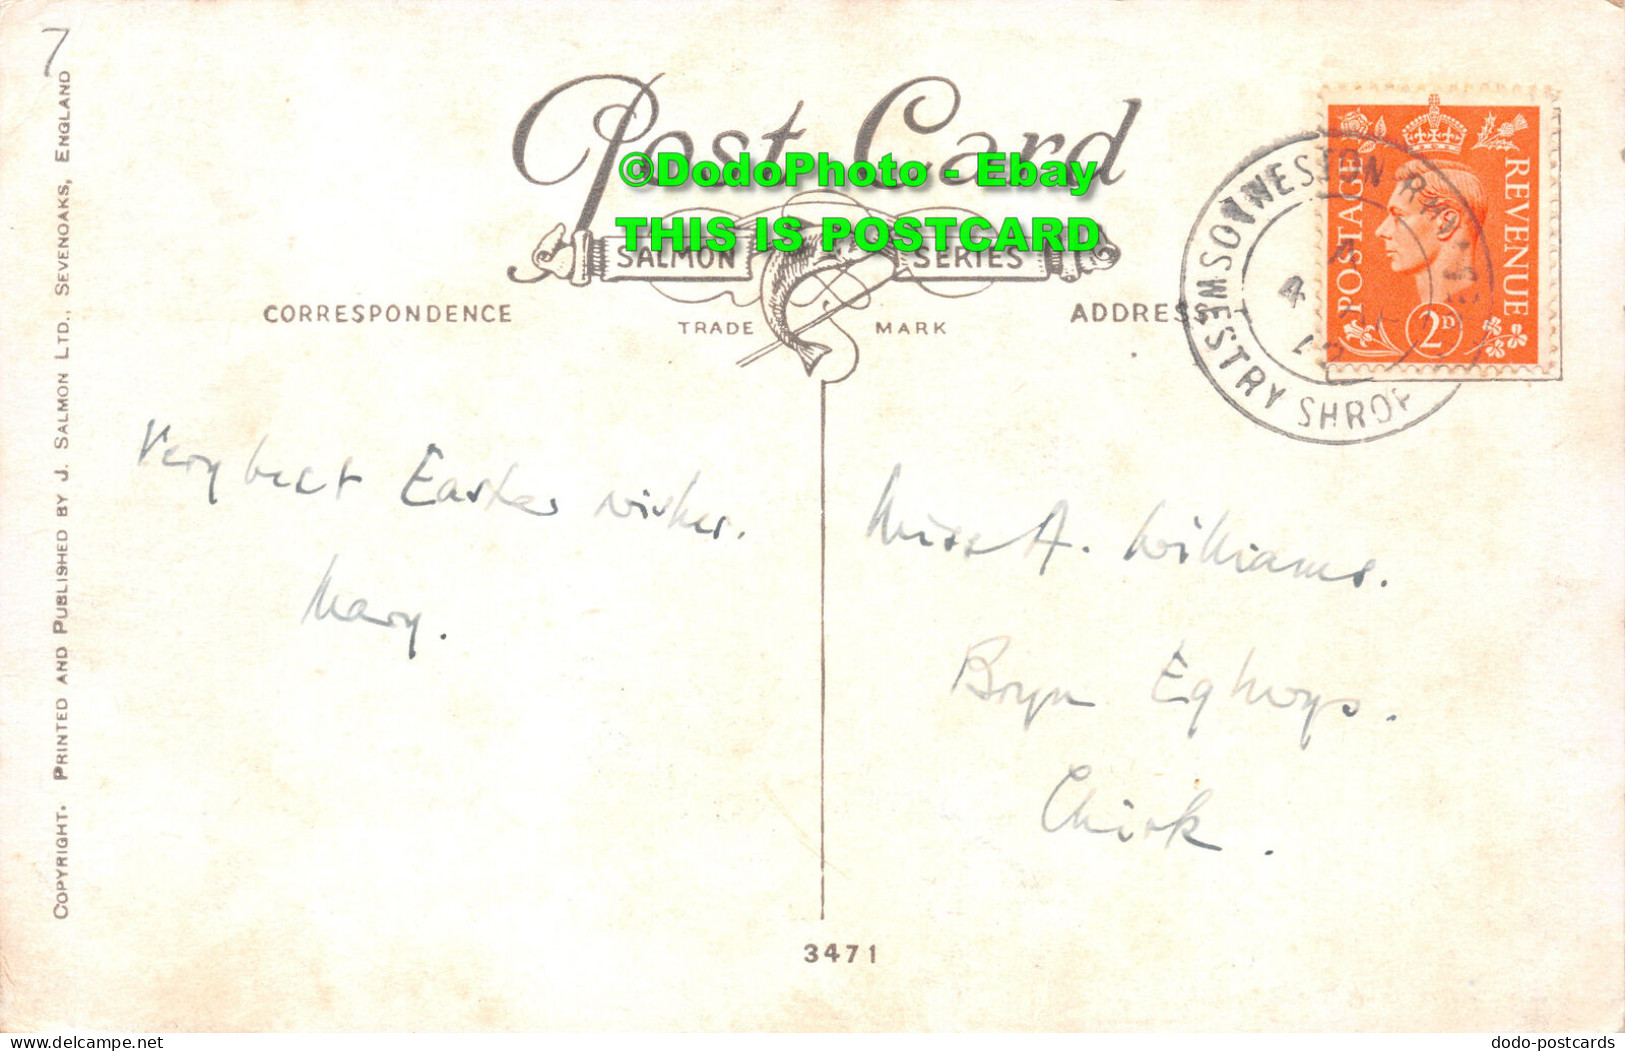 7
Post Card
©DodoPhoto - Ebay
THIS IS POSTCARD
SALMON SERIES
TRADE MARK
CORRESPONDENCE
ADDRESS
POSTAGE
REVENUE
2D
WESTON RHYN
OSWESTRY SHROP
4
Very best Easter wishes.
Mary.
Miss A. Williams.
Bryn Eglwys.
Chirk.
COPYRIGHT. PRINTED AND PUBLISHED BY J. SALMON LTD., SEVENOAKS, ENGLAND
3471
delcampe.net
dodo-postcards